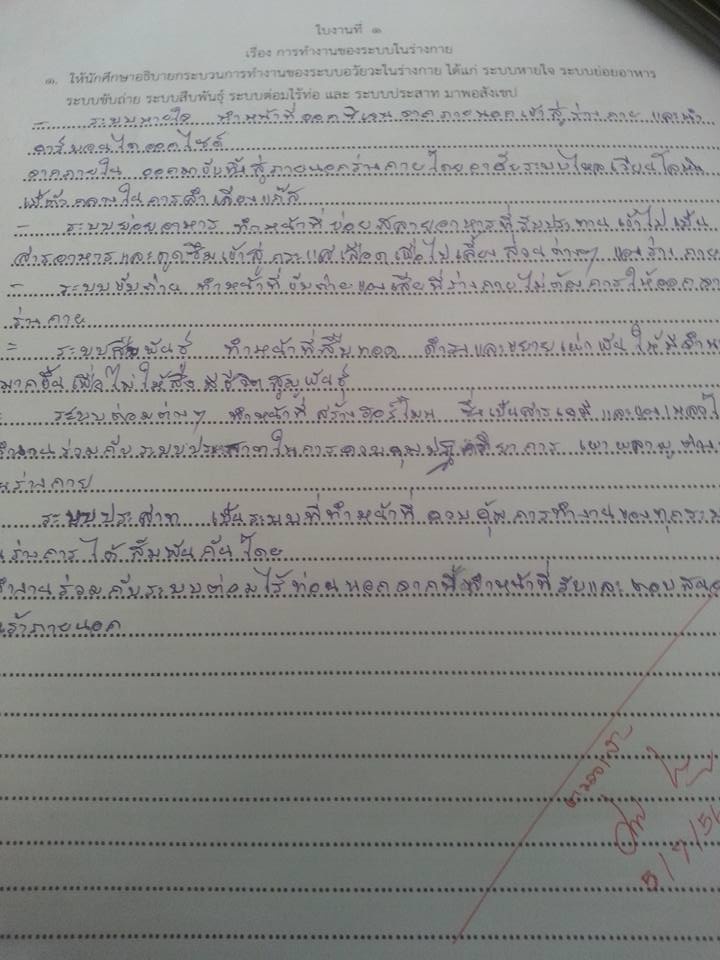 ใบงานที่ ๑
เรื่อง การทำงานของระบบในร่างกาย
๑. ให้นักศึกษาอธิบายกระบวนการทำงานของระบบอวัยวะในร่างกาย ได้แก่ ระบบหายใจ ระบบย่อยอาหาร
ระบบขับถ่าย ระบบสืบพันธุ์ ระบบต่อมไร้ท่อ และ ระบบประสาท มาพอสังเขป
- ระบบหายใจ ทำหน้าที่ออกซิเจน จากภายนอกเข้าสู่ร่างกาย และนำ
คาร์บอนไดออกไซด์
จากภายใน ออกมาขับทิ้งสู่ภายนอกร่างกายโดยอาศัยระบบไหลเวียนโลหิต
เป็นตัวกลางในการลำเลียงแก๊ส
- ระบบย่อยอาหาร ทำหน้าที่ย่อยสลายอาหารที่รับประทานเข้าไปเป็น
สารอาหารและดูดซึมเข้าสู่กระแสเลือดเพื่อไปเลี้ยงส่วนต่างๆ ของร่างกาย
- ระบบขับถ่าย ทำหน้าที่ขับถ่ายของเสียที่ร่างกายไม่ต้องการให้ออกจา
ร่างกาย
- ระบบสืบพันธุ์ ทำหน้าที่สืบทอด ดำรงและขยายเผ่าพันธุ์ให้มีจำน
มากขึ้นเพื่อไม่ให้สิ่งมีชีวิตสูญพันธุ์
- ระบบต่อมต่างๆ ทำหน้าที่สร้างฮอร์โมน ซึ่งเป็นสารเคมี และของเหลว
ทำงานร่วมกับระบบประสาทในการควบคุมปฏิกิริยาการ เผาผลาญต่าง
ในร่างกาย
ระบบประสาท เป็นระบบที่ทำหน้าที่ ควบคุมการทำงานของทุกระบ
ในร่างการได้สัมพันกันโดย
ทำงานร่วมกับระบบต่อมไร้ท่อนอกจากนี้ทำหน้าที่รับและตอบสนอ
เร้าภายนอก
5/7/56